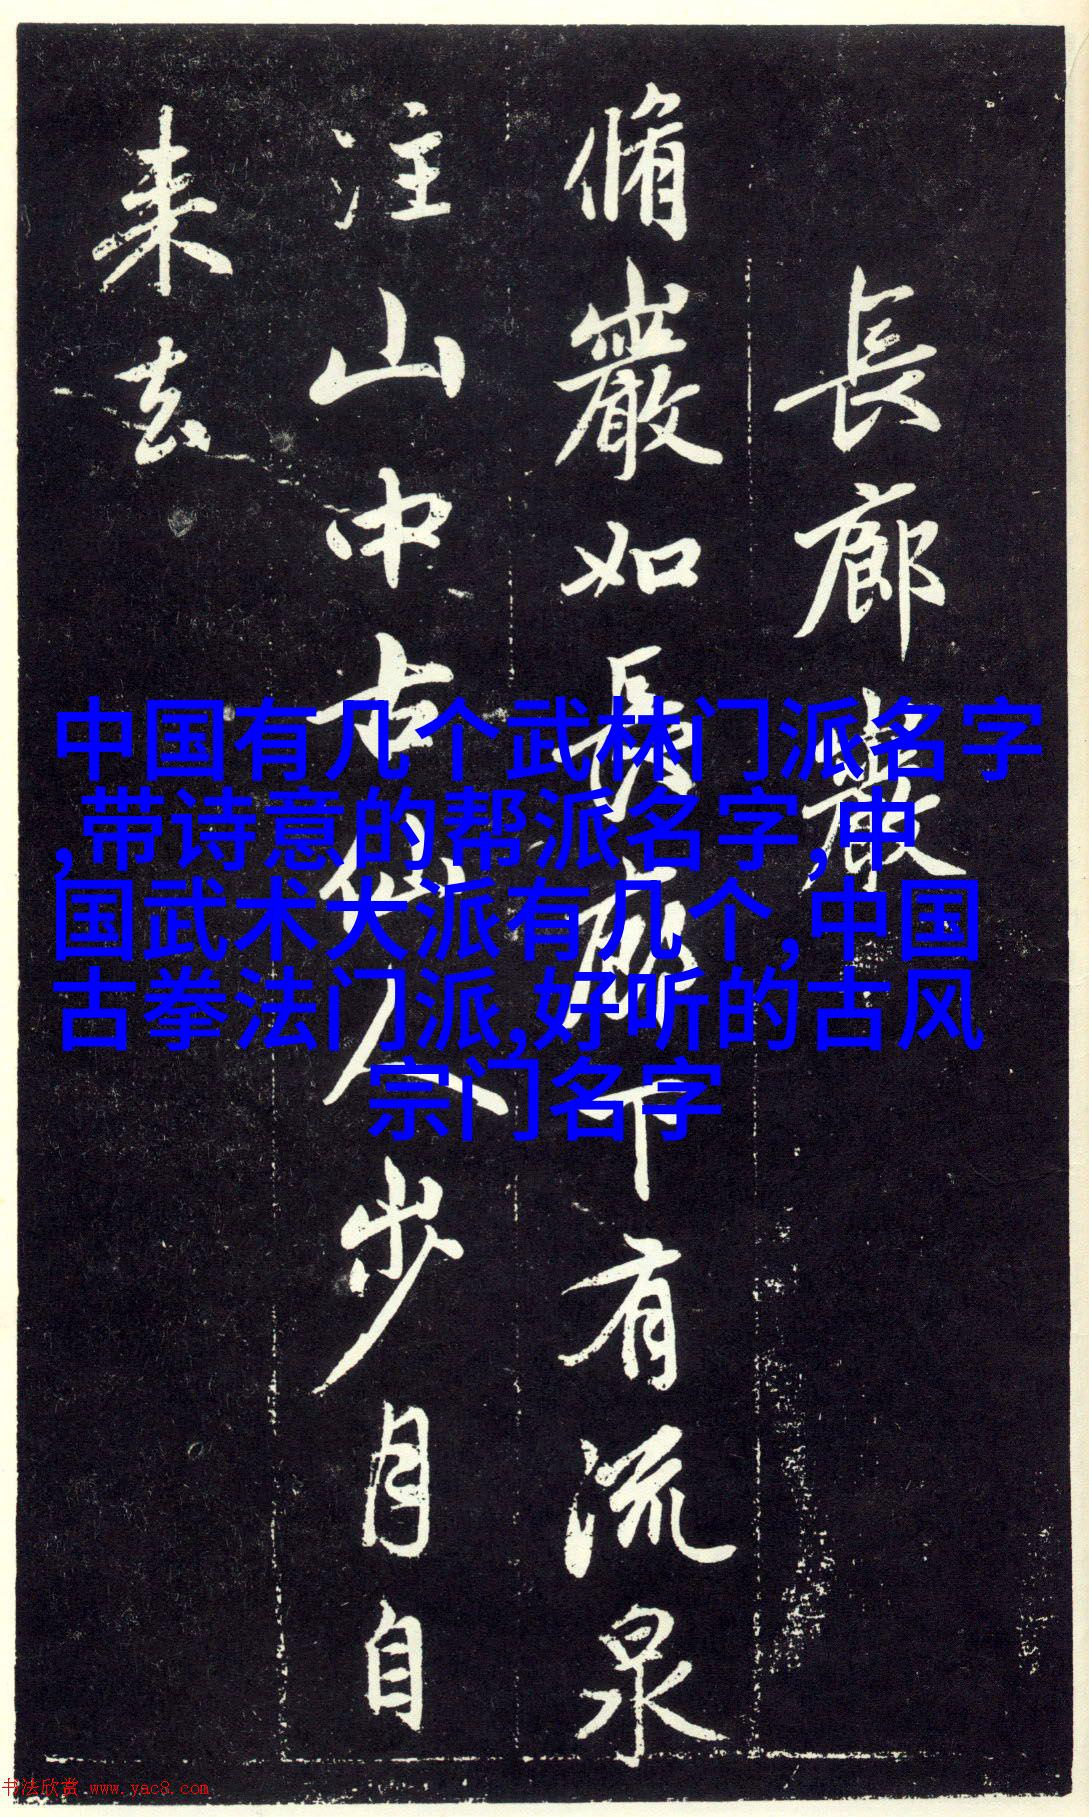 長廊巖
脩巖如長廊下有流泉
注山中古仙人步月自
来去
中国有几个武林门派名字
,带诗意的帮派名字,中
国武术大派有几个,中国
古拳法门派,好听的古风
宗门名字
书法欣赏 www.yac8.com